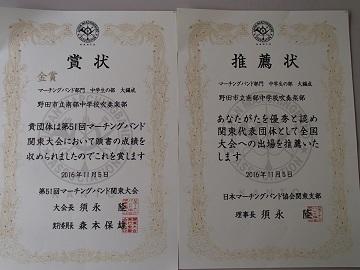 賞状
金賞
マーチングバンド部門 中学生の部 大編成
野田市立南部中学校吹奏楽部
貴団体は第51回マーチングバンド
関東大会において頭書の成績を
収められましたのでこれを賞します
2016年11月5日
第51回マーチングバンド関東大会
大会長 須永 陸
実行委員長 森本保雄
推薦状
マーチングバンド部門 中学生の部 大編成
野田市立南部中学校吹奏楽部
あなたがたを優秀と認め
関東代表団体として全国
大会への出場を推薦いた
します
2016年11月5日
日本マーチングバンド協会関東支部
理事長 須永 陸